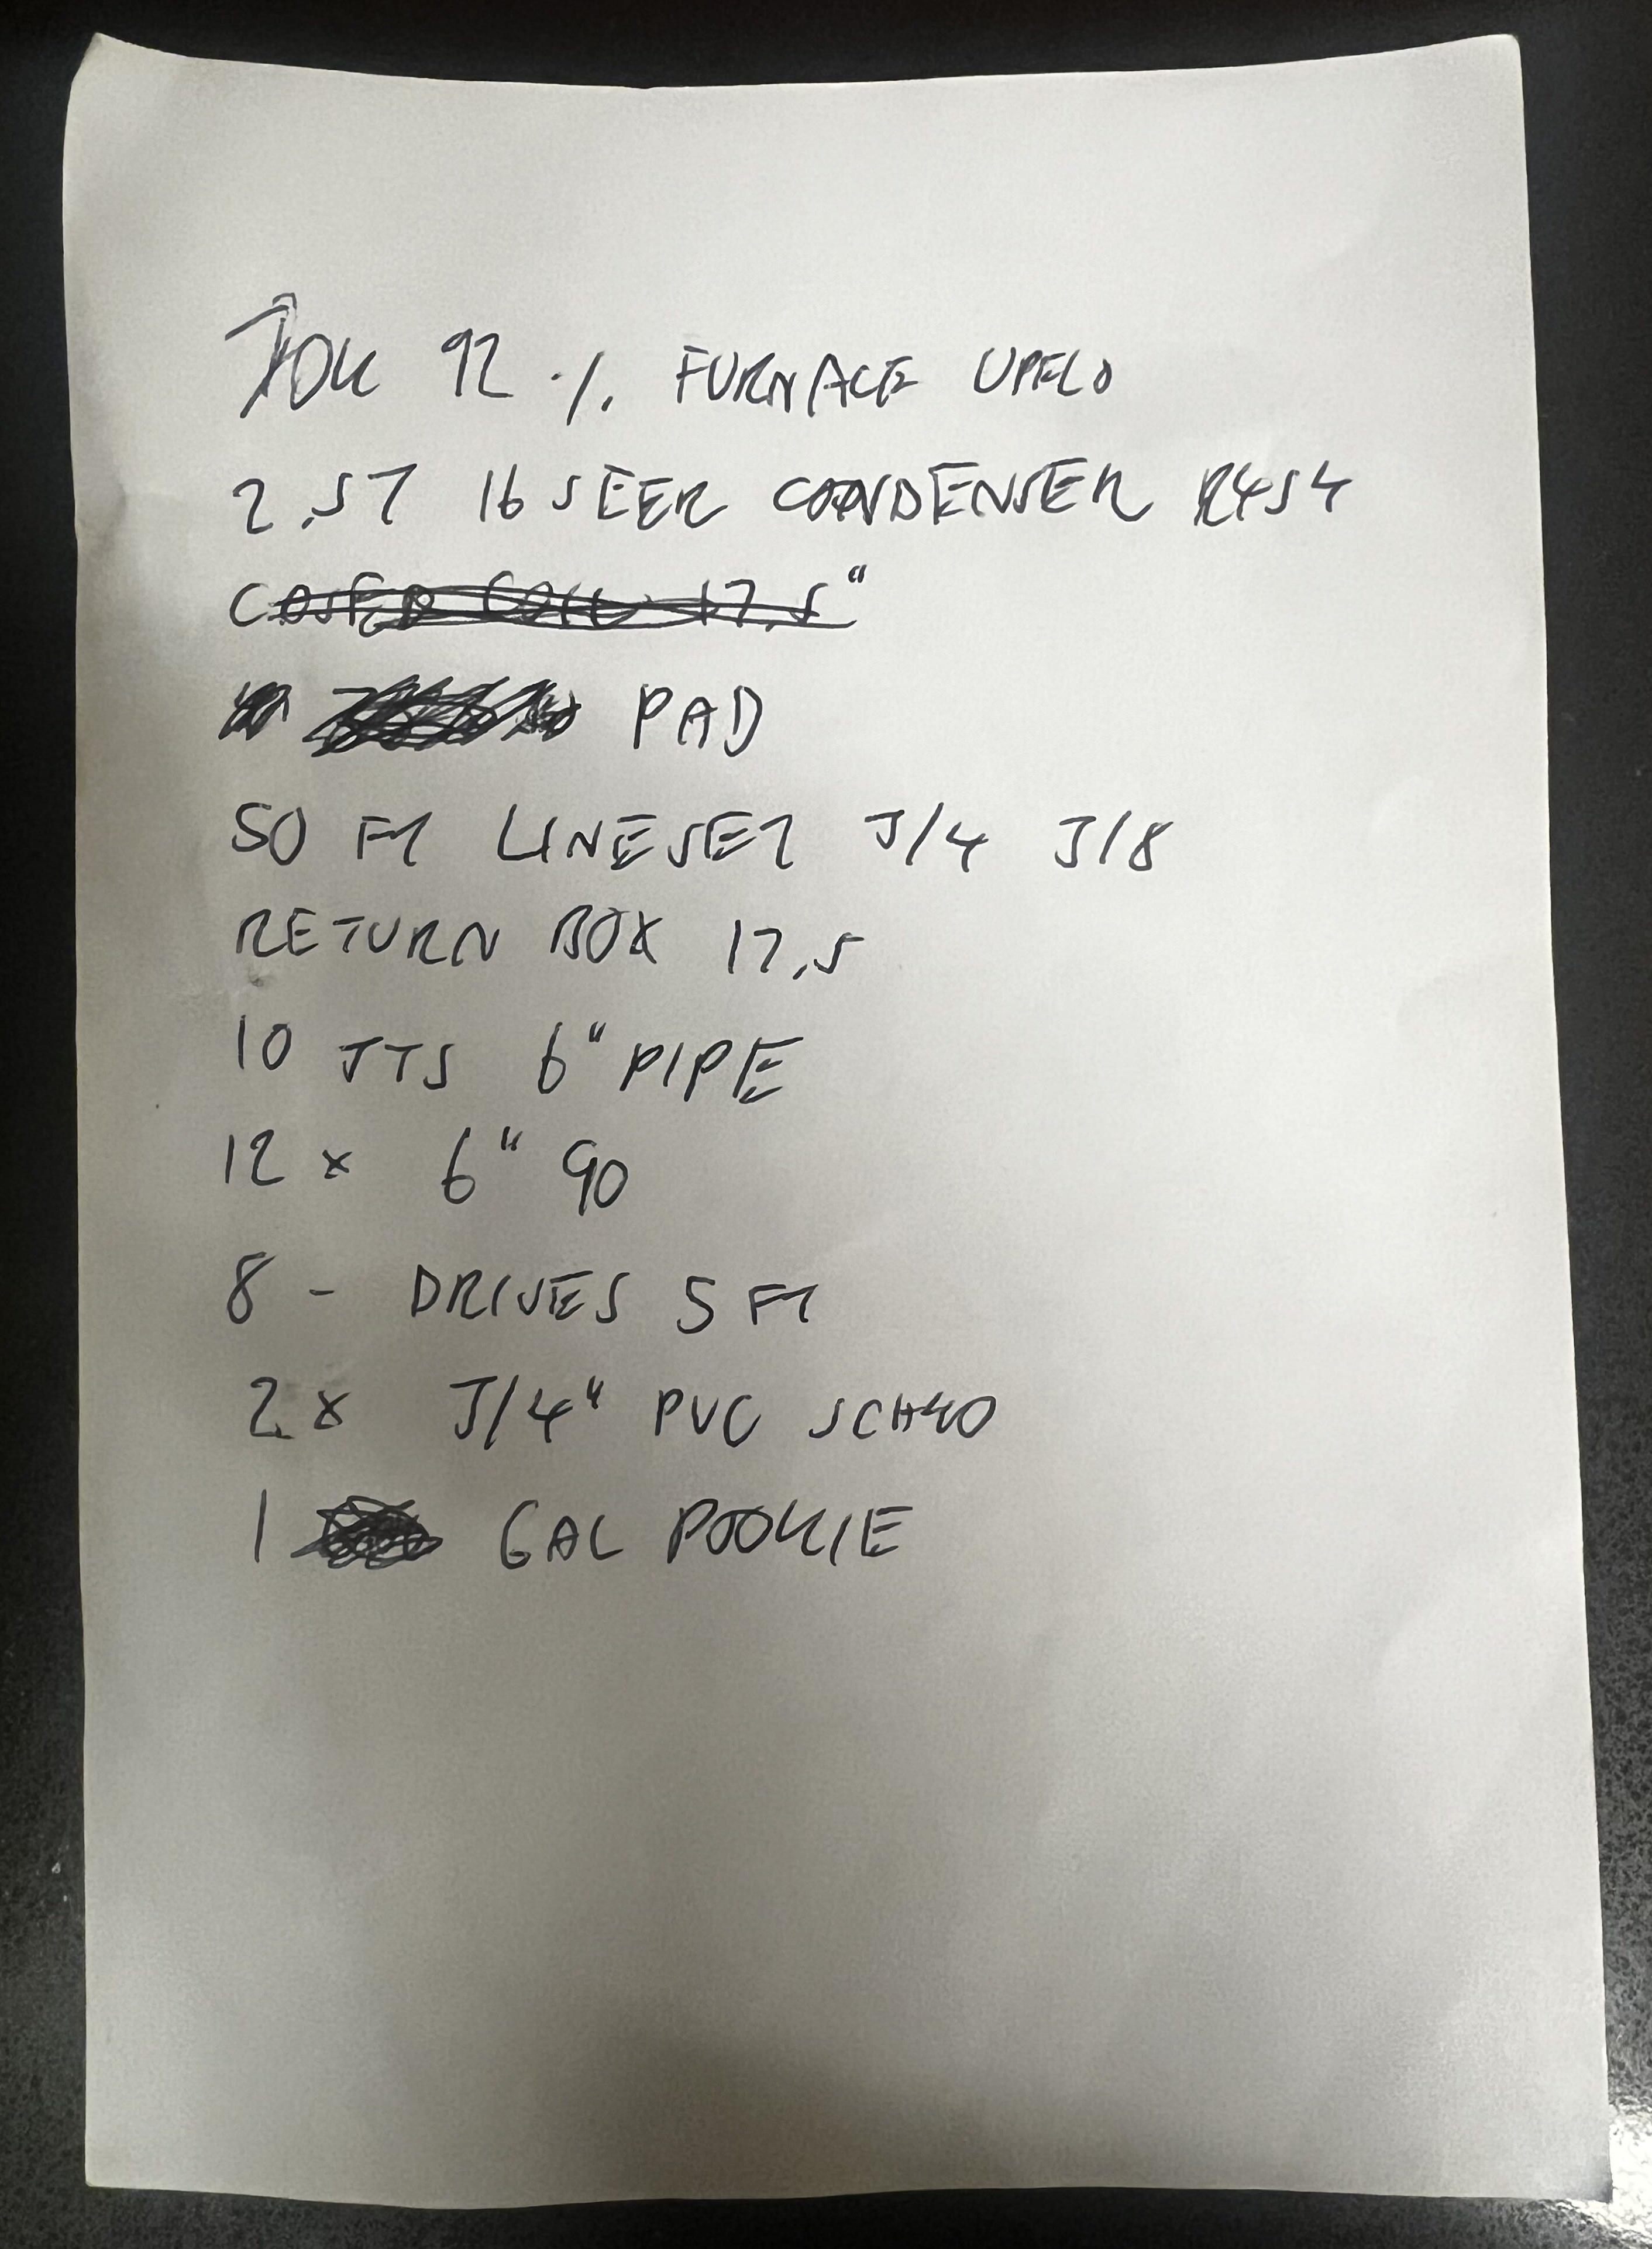 70K 92 % FURNACE UPFLO
2.5T 16 SEER CONDENSER R454
CASED COIL 17.5"
PAD
50 FT LINESET 3/4 3/8
RETURN BOX 17.5
10 JTS 6" PIPE
12 x 6" 90
8 - DRIVES 5 FT
2 x 3/4" PVC SCH40
1 GAL POOKIE